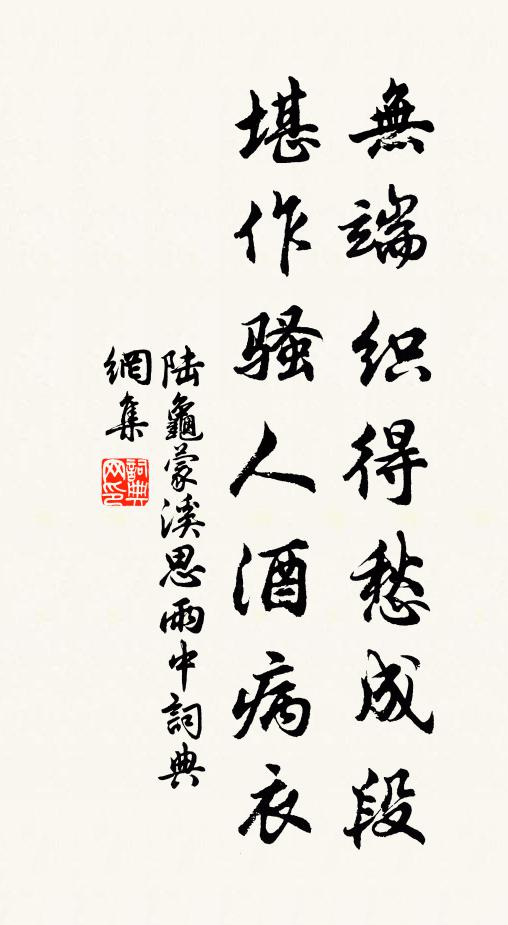 無端织得愁成段
堪作骚人酒病衣
陆龜蒙溪思雨中詞典
網集
詞典网印